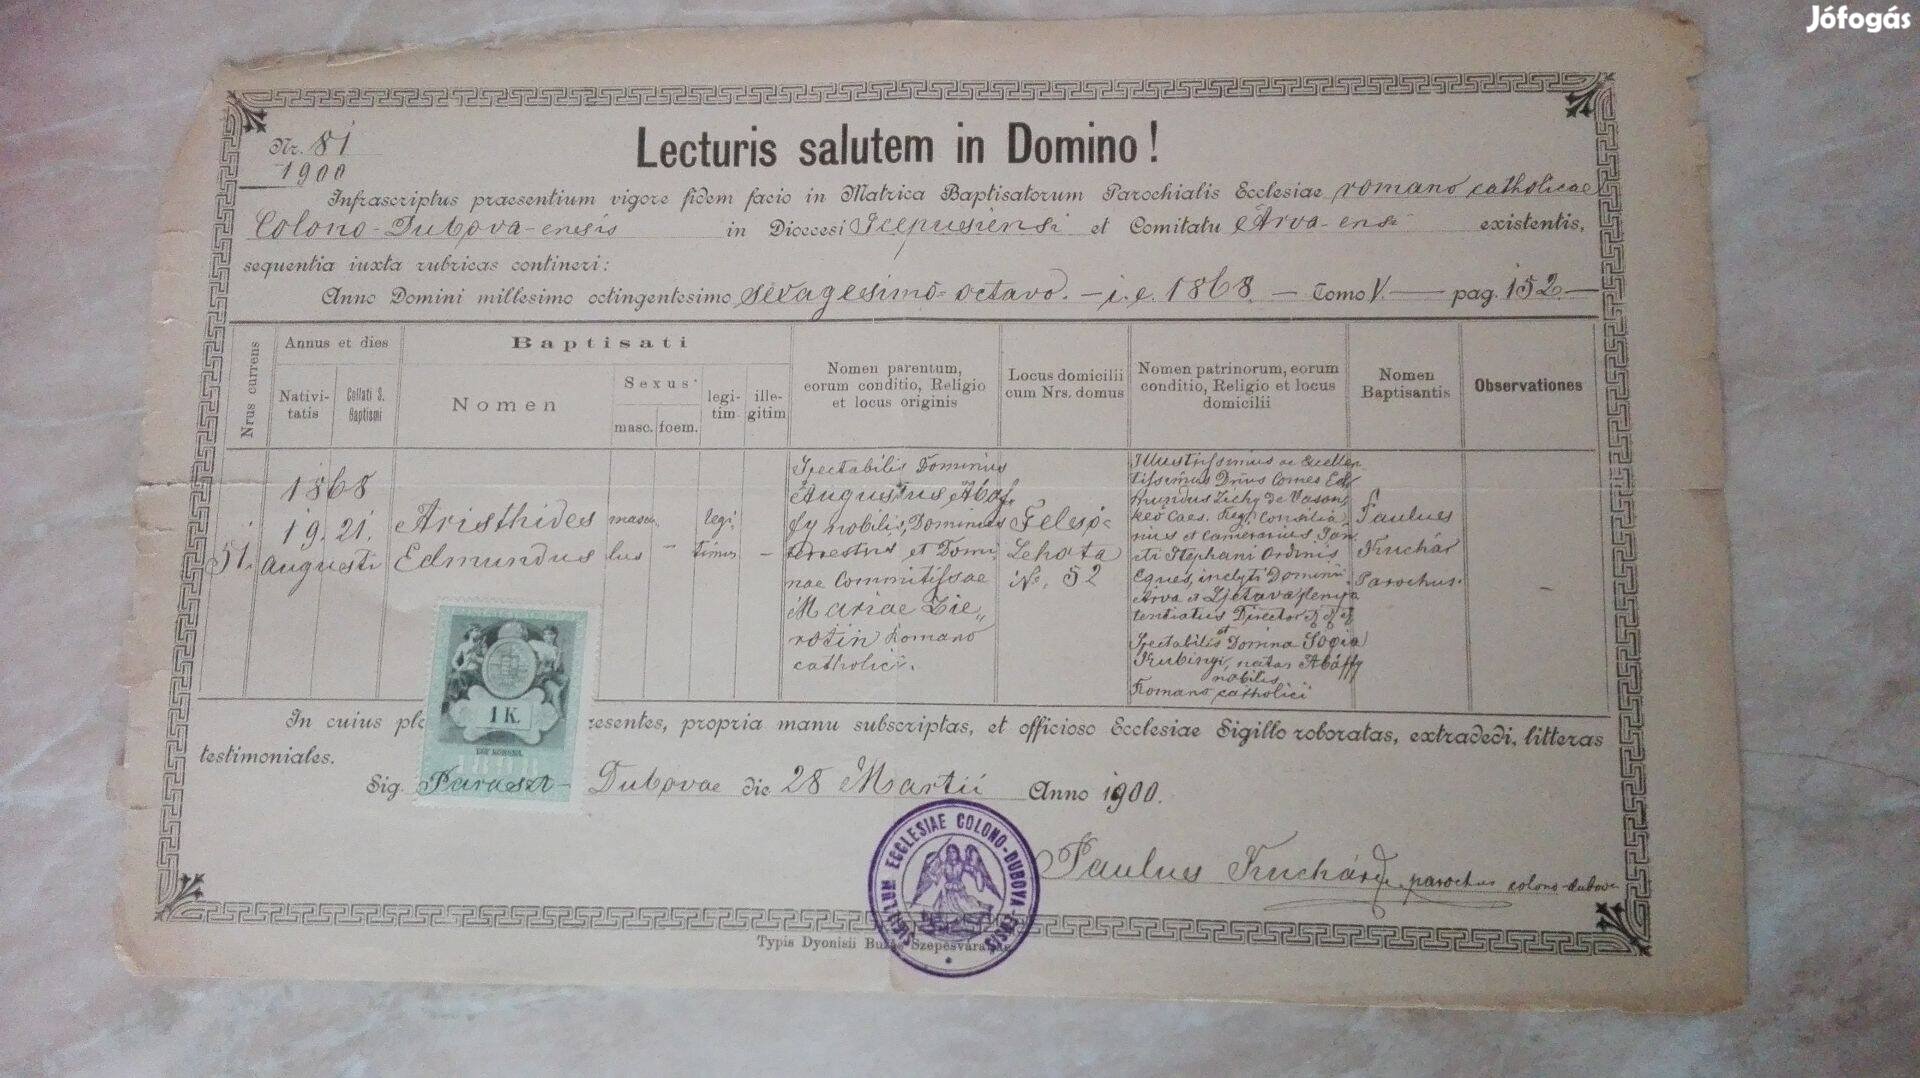 Jófogás
Nr. 81
1900
Lecturis salutem in Domino!
Infrascriptus praesentium vigore fidem facio in Matrica Baptisatorum Parochialis Ecclesiae romano catholicae
Colono-Dubova-ensis in Dioecesi Scepusiensi et Comitatu Arva-ensi existentis,
sequentia iuxta rubricas contineri:
Anno Domini millesimo octingentesimo sexagesimo-octavo. — i. e. 1868. — Tomo V. — pag. 152 —
Nrus currens
Annus et dies
Nativitatis
Collati S. Baptismi
Baptisati
Nomen
Sexus
masc.
foem.
legitim
illegitim
Nomen parentum,
eorum conditio, Religio
et locus originis
Locus domicilii
cum Nrs. domus
Nomen patrinorum, eorum
conditio, Religio et locus
domicilii
Nomen
Baptisantis
Observationes
51.
1868
19. 21.
augusti
Aristhides
Edmundus
mascu
lus
–
legi
timus
–
Spectabilis Dominus
Augustus Abaf
fy nobilis, Dominus
terrestris et Domi
nae Commitissae
Mariae Zie„
rotin Romano
catholici.
Felső-
Lehota
No. 52
Illustrissimus ac Excellen
tissimus Dnus Comes Ed
mundus Zichy de Vason
keö Caes. Reg. Consilia
rius et Camerarius San
cti Stephani Ordinis
Eques, inclyti Dominii
Arva et
tentiatus Director
Spectabilis et Domina Sofia
Kubinyi, natas Abaffy
nobilis
Romano catholici
Paulus
Kuchár
Parochus.
–
1 K.
EGY KORONA.
In cuius resentes, propria manu subscriptas, et officioso Ecclesiae Sigillo roboratas, extradedi, litteras
testimoniales.
Sig. Paraszt- Dubovae die 28 Martii Anno 1900.
SIGILLUM ECCLESIAE COLONO-DUBOVA-ENSIS
Paulus Kuchár parochus colono-dubov
Typis Dyonisii Szepesvára